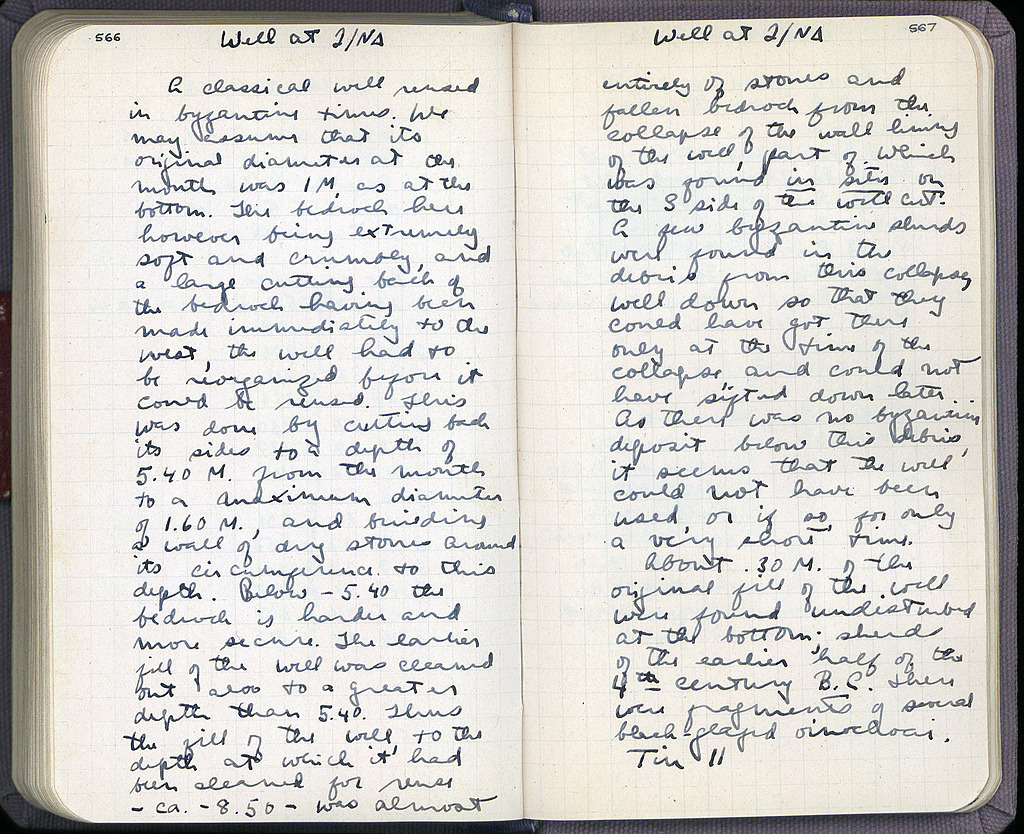 566
Well at 2/ΝΔ
A classical well reused
in byzantine times. We
may assume that its
original diameter at the
mouth was 1 M, as at the
bottom. The bedrock here
however being extremely
soft and crumbly, and
a large cutting back of
the bedrock having been
made immediately to the
west, the well had to
be reorganized before it
could be reused. This
was done by cutting back
its sides to a depth of
5.40 M. from the mouth
to a maximum diameter
of 1.60 M., and building
a wall of dry stones around
its circumference to this
depth. Below - 5.40 the
bedrock is harder and
more secure. The earlier
fill of the well was cleaned
out also to a greater
depth than 5.40. Thus
the fill of the well to the
depth at which it had
been cleaned for reuse
- ca. - 8.50 - was almost
567
Well at 2/ΝΔ
entirely of stones and
fallen bedrock from the
collapse of the wall lining
of the well, part of which
was found in situ on
the S side of the well cut.
A few byzantine sherds
were found in the
debris from this collapse,
well down so that they
could have got there
only at the time of the
collapse and could not
have sifted down later.
As there was no byzantine
deposit below this debris,
it seems that the well
could not have been
used, or if so for only
a very short time.
About .30 M. of the
original fill of the well
were found undisturbed
at the bottom; sherds
of the earlier half of the
4th century B.C. There
were fragments of several
black-glazed oinochoai.
Tin 11